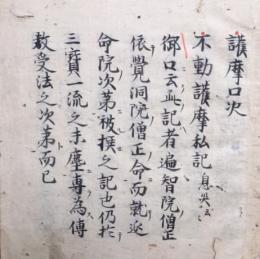 護摩口决
不動護摩私記 息災
御口云此記者遍智院僧正
依覺洞院僧正命而就延
命院次第被撰之記也仍於
三寶一流之末塵專為傳
教受法之次第而已